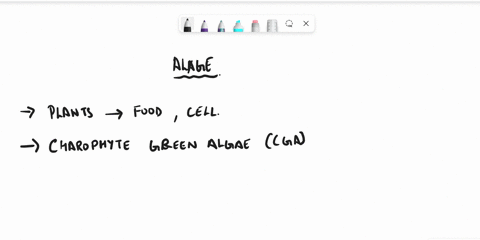 ALAGE.
→ PLANTS → FOOD, CELL.
→ CHAROPHYTE GREEN ALGAE (CGA)